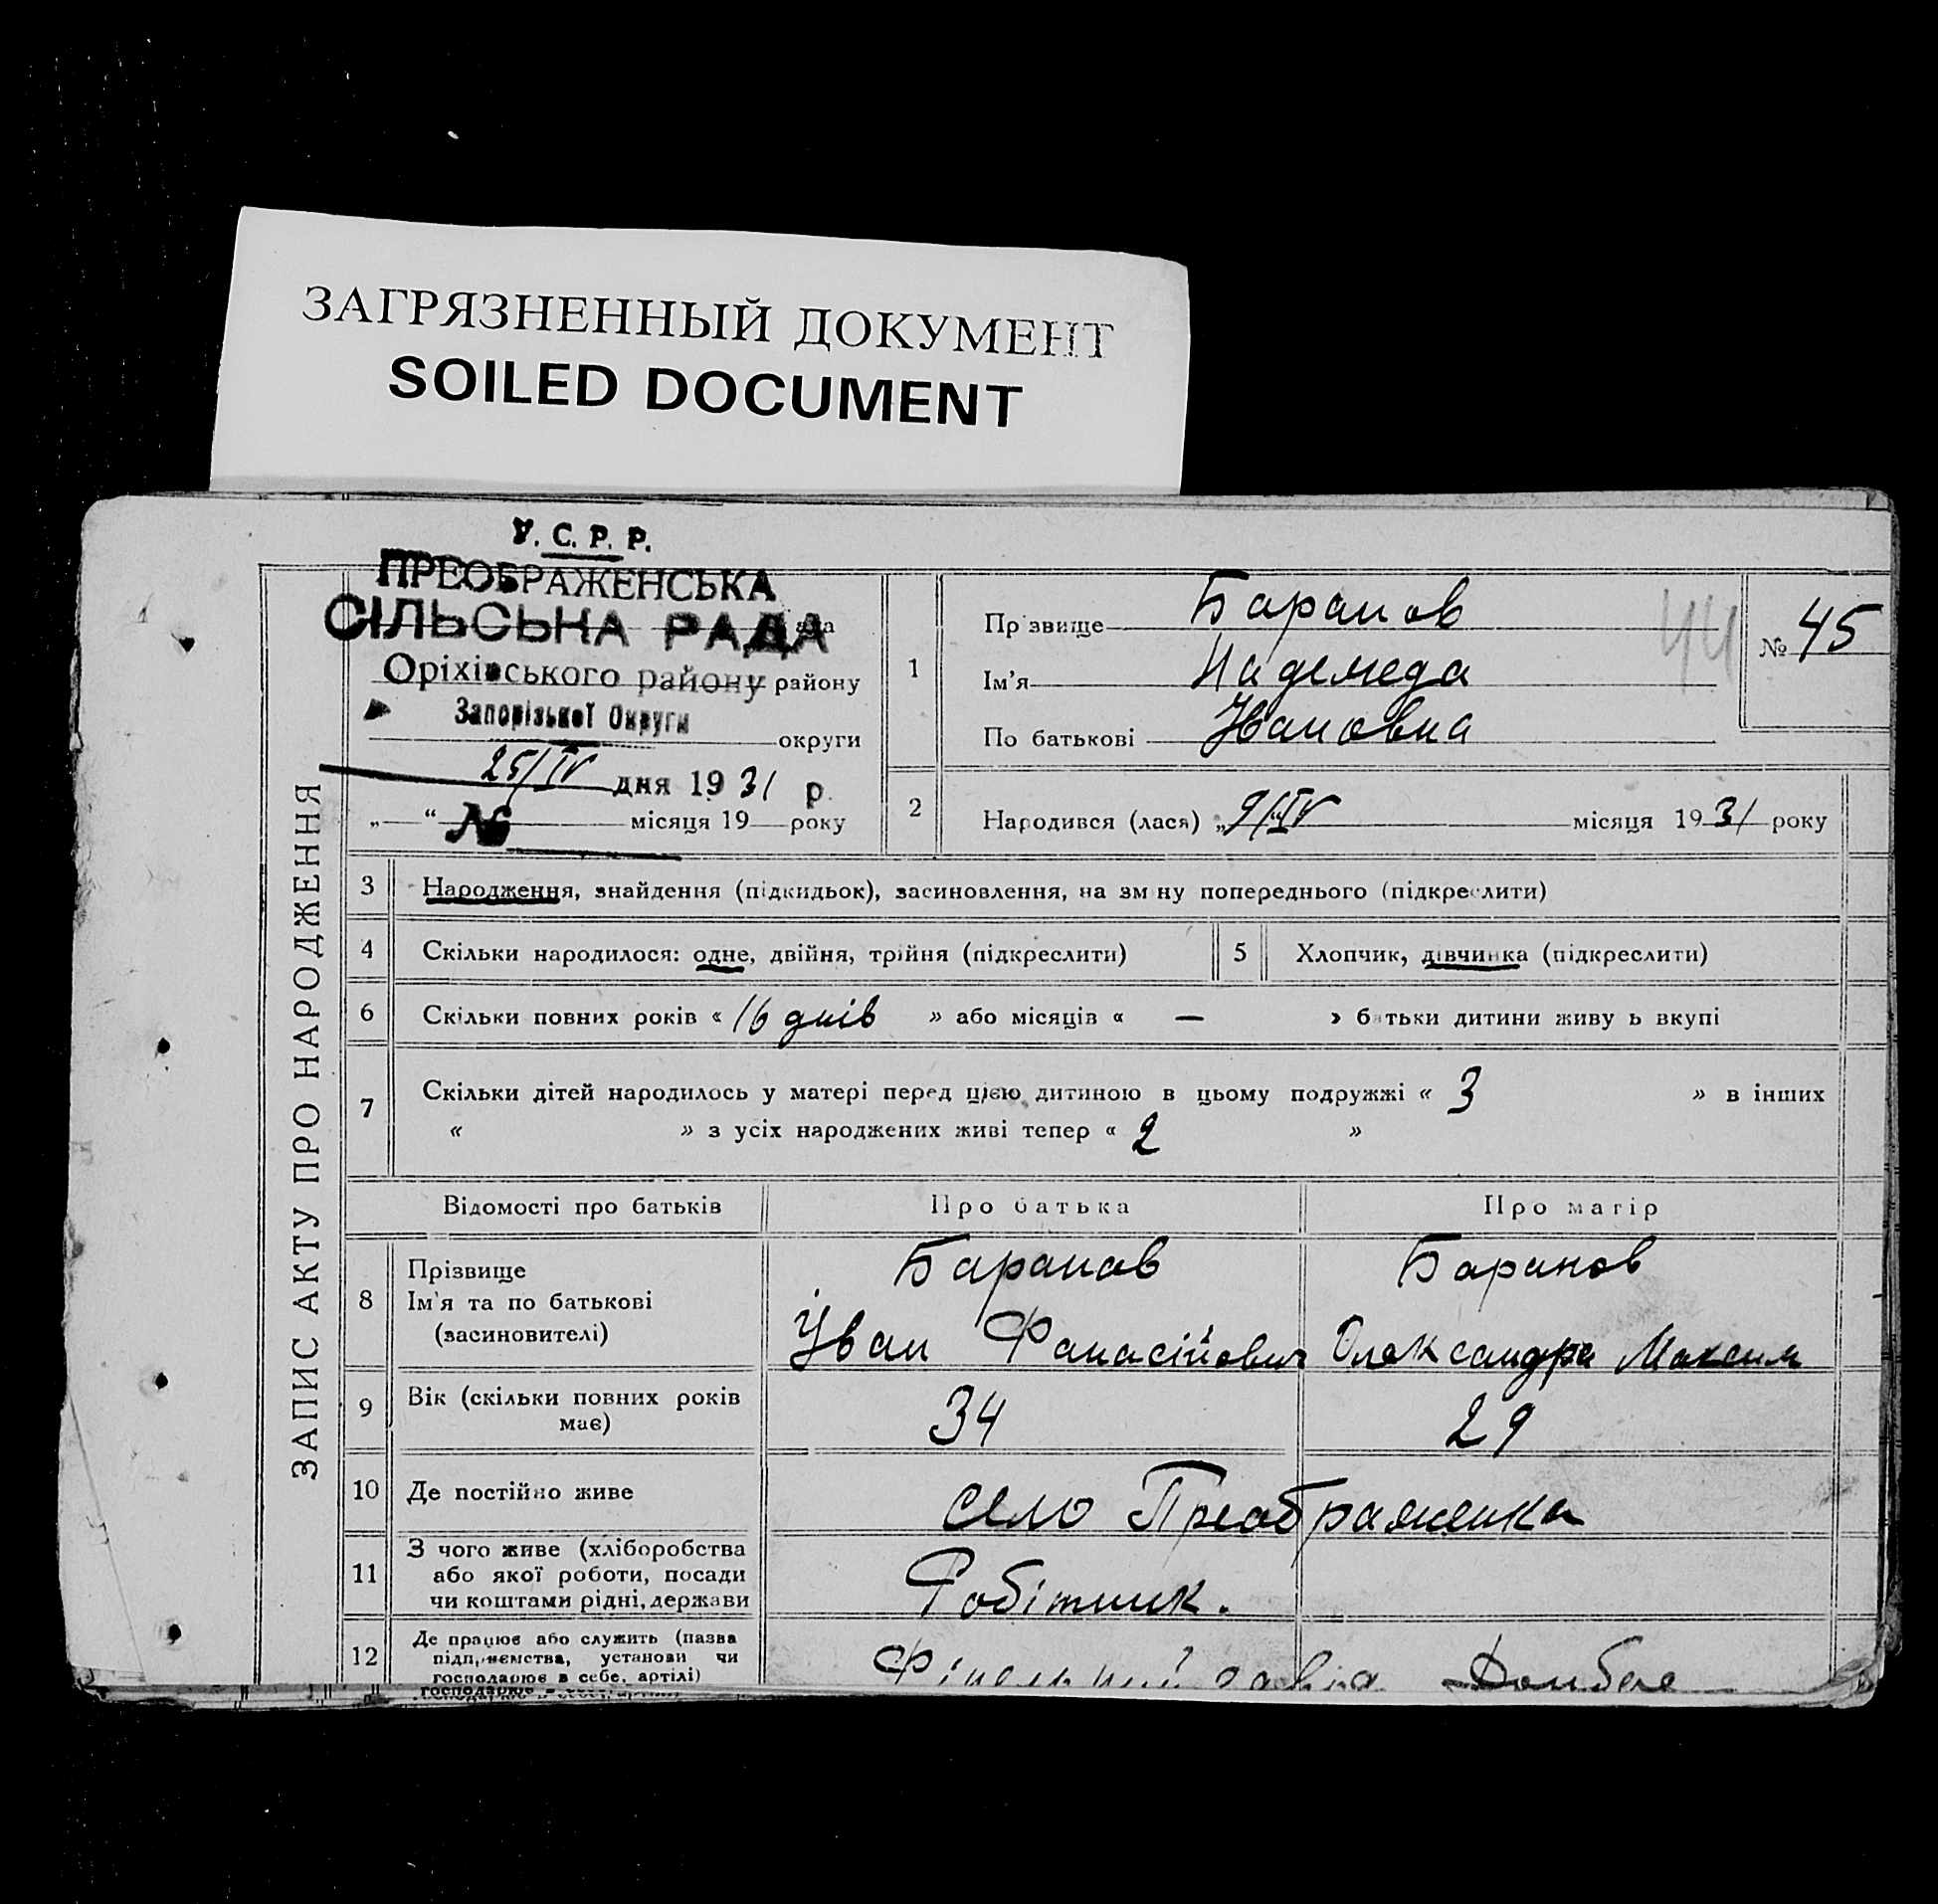 ЗАГРЯЗНЕННЫЙ ДОКУМЕНТ
SOILED DOCUMENT
У. С. Р. Р.
ПРЕОБРАЖЕНСЬКА
СІЛЬСЬНА РАДА
Оріхівського району району
Запорізької Округи
округи
25/IV дня 1931 р.
„—“ № місяця 19 року
ЗАПИС АКТУ ПРО НАРОДЖЕННЯ
1
Прізвище Баранов
Ім'я Надежеда
По батькові Івановна
44
№ 45
2 Народився (лася) „9/IV місяця 1931 року
3 Народження, знайдення (підкидьок), засиновлення, на зміну попереднього (підкреслити)
4 Скільки народилося: одне, двійня, трійня (підкреслити)
5 Хлопчик, дівчинка (підкреслити)
6 Скільки повних років « 16 днів » або місяців « — » батьки дитини живуть вкупі
7 Скільки дітей народилось у матері перед цією дитиною в цьому подружжі « 3 » в інших
« » з усіх народжених живі тепер « 2 »
Відомості про батьків Про батька Про матір
8 Прізвище Баранов Баранов
Ім'я та по батькові
(засиновителі) Іван Фанасійович Олександра Максим
9 Вік (скільки повних років має) 34 29
10 Де постійно живе село Преображенка
11 З чого живе (хліборобства
або якої роботи, посади
чи коштами рідні, держави Робітник.
12 Де працює або служить (назва
підприємства, установи чи
господарює в себе, артілі)
господарює в себе, артілі)